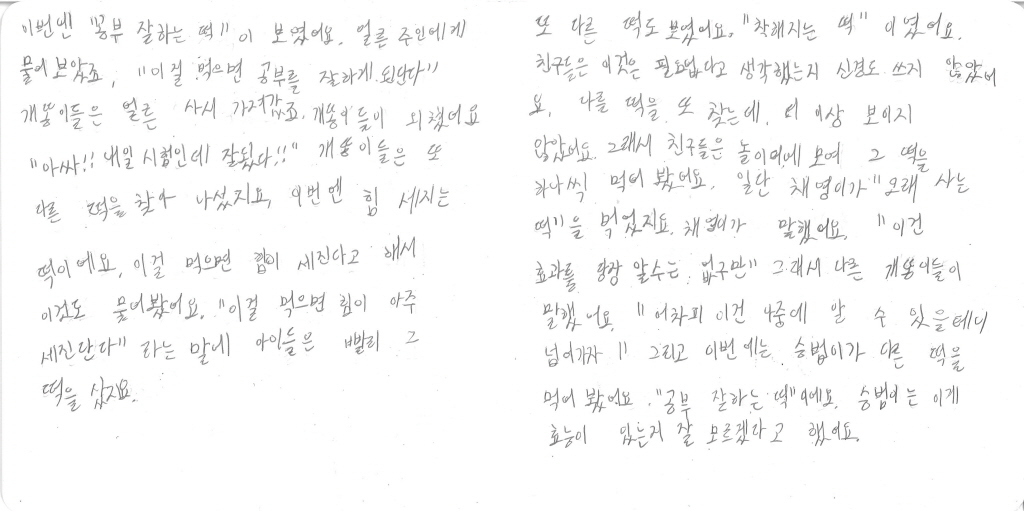 이번엔 "공부 잘하는 떡"이 보였어요. 얼른 주인에게
물어보았죠. "이걸 먹으면 공부를 잘하게 된단다"
개똥이들은 얼른 사서 가져갔죠. 개똥이들이 외쳤어요
"아싸!! 내일 시험인데 잘됐다!!" 개똥이들은 또
다른 떡을 찾아 나섰지요. 이번엔 힘 세지는
떡이에요. 이걸 먹으면 힘이 세진다고 해서
이것도 물어봤어요. "이걸 먹으면 힘이 아주
세진단다" 라는 말에 아이들은 빨리 그
떡을 샀지요.
또 다른 떡도 보였어요. "착해지는 떡" 이였어요.
친구들은 이것은 필요없다고 생각했는지 신경도 쓰지 않았어
요. 다른 떡을 또 찾는데, 더 이상 보이지
않았어요. 그래서 친구들은 놀이터에 모여 그 떡을
하나씩 먹어 봤어요. 일단 채영이가 "오래 사는
떡"을 먹었지요. 채영이가 말했어요. "이건
효과를 당장 알수는 없구만" 그래서 다른 개똥이들이
말했어요. "어차피 이건 나중에 알 수 있을테니
넘어가자" 그리고 이번에는 승범이가 다른 떡을
먹어 봤어요. "공부 잘하는 떡"이에요. 승범이는 이게
효능이 있는지 잘 모르겠다고 했어요.